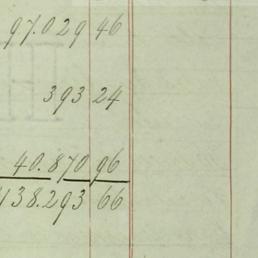 97.029 46
393 24
40.870 96
138.293 66